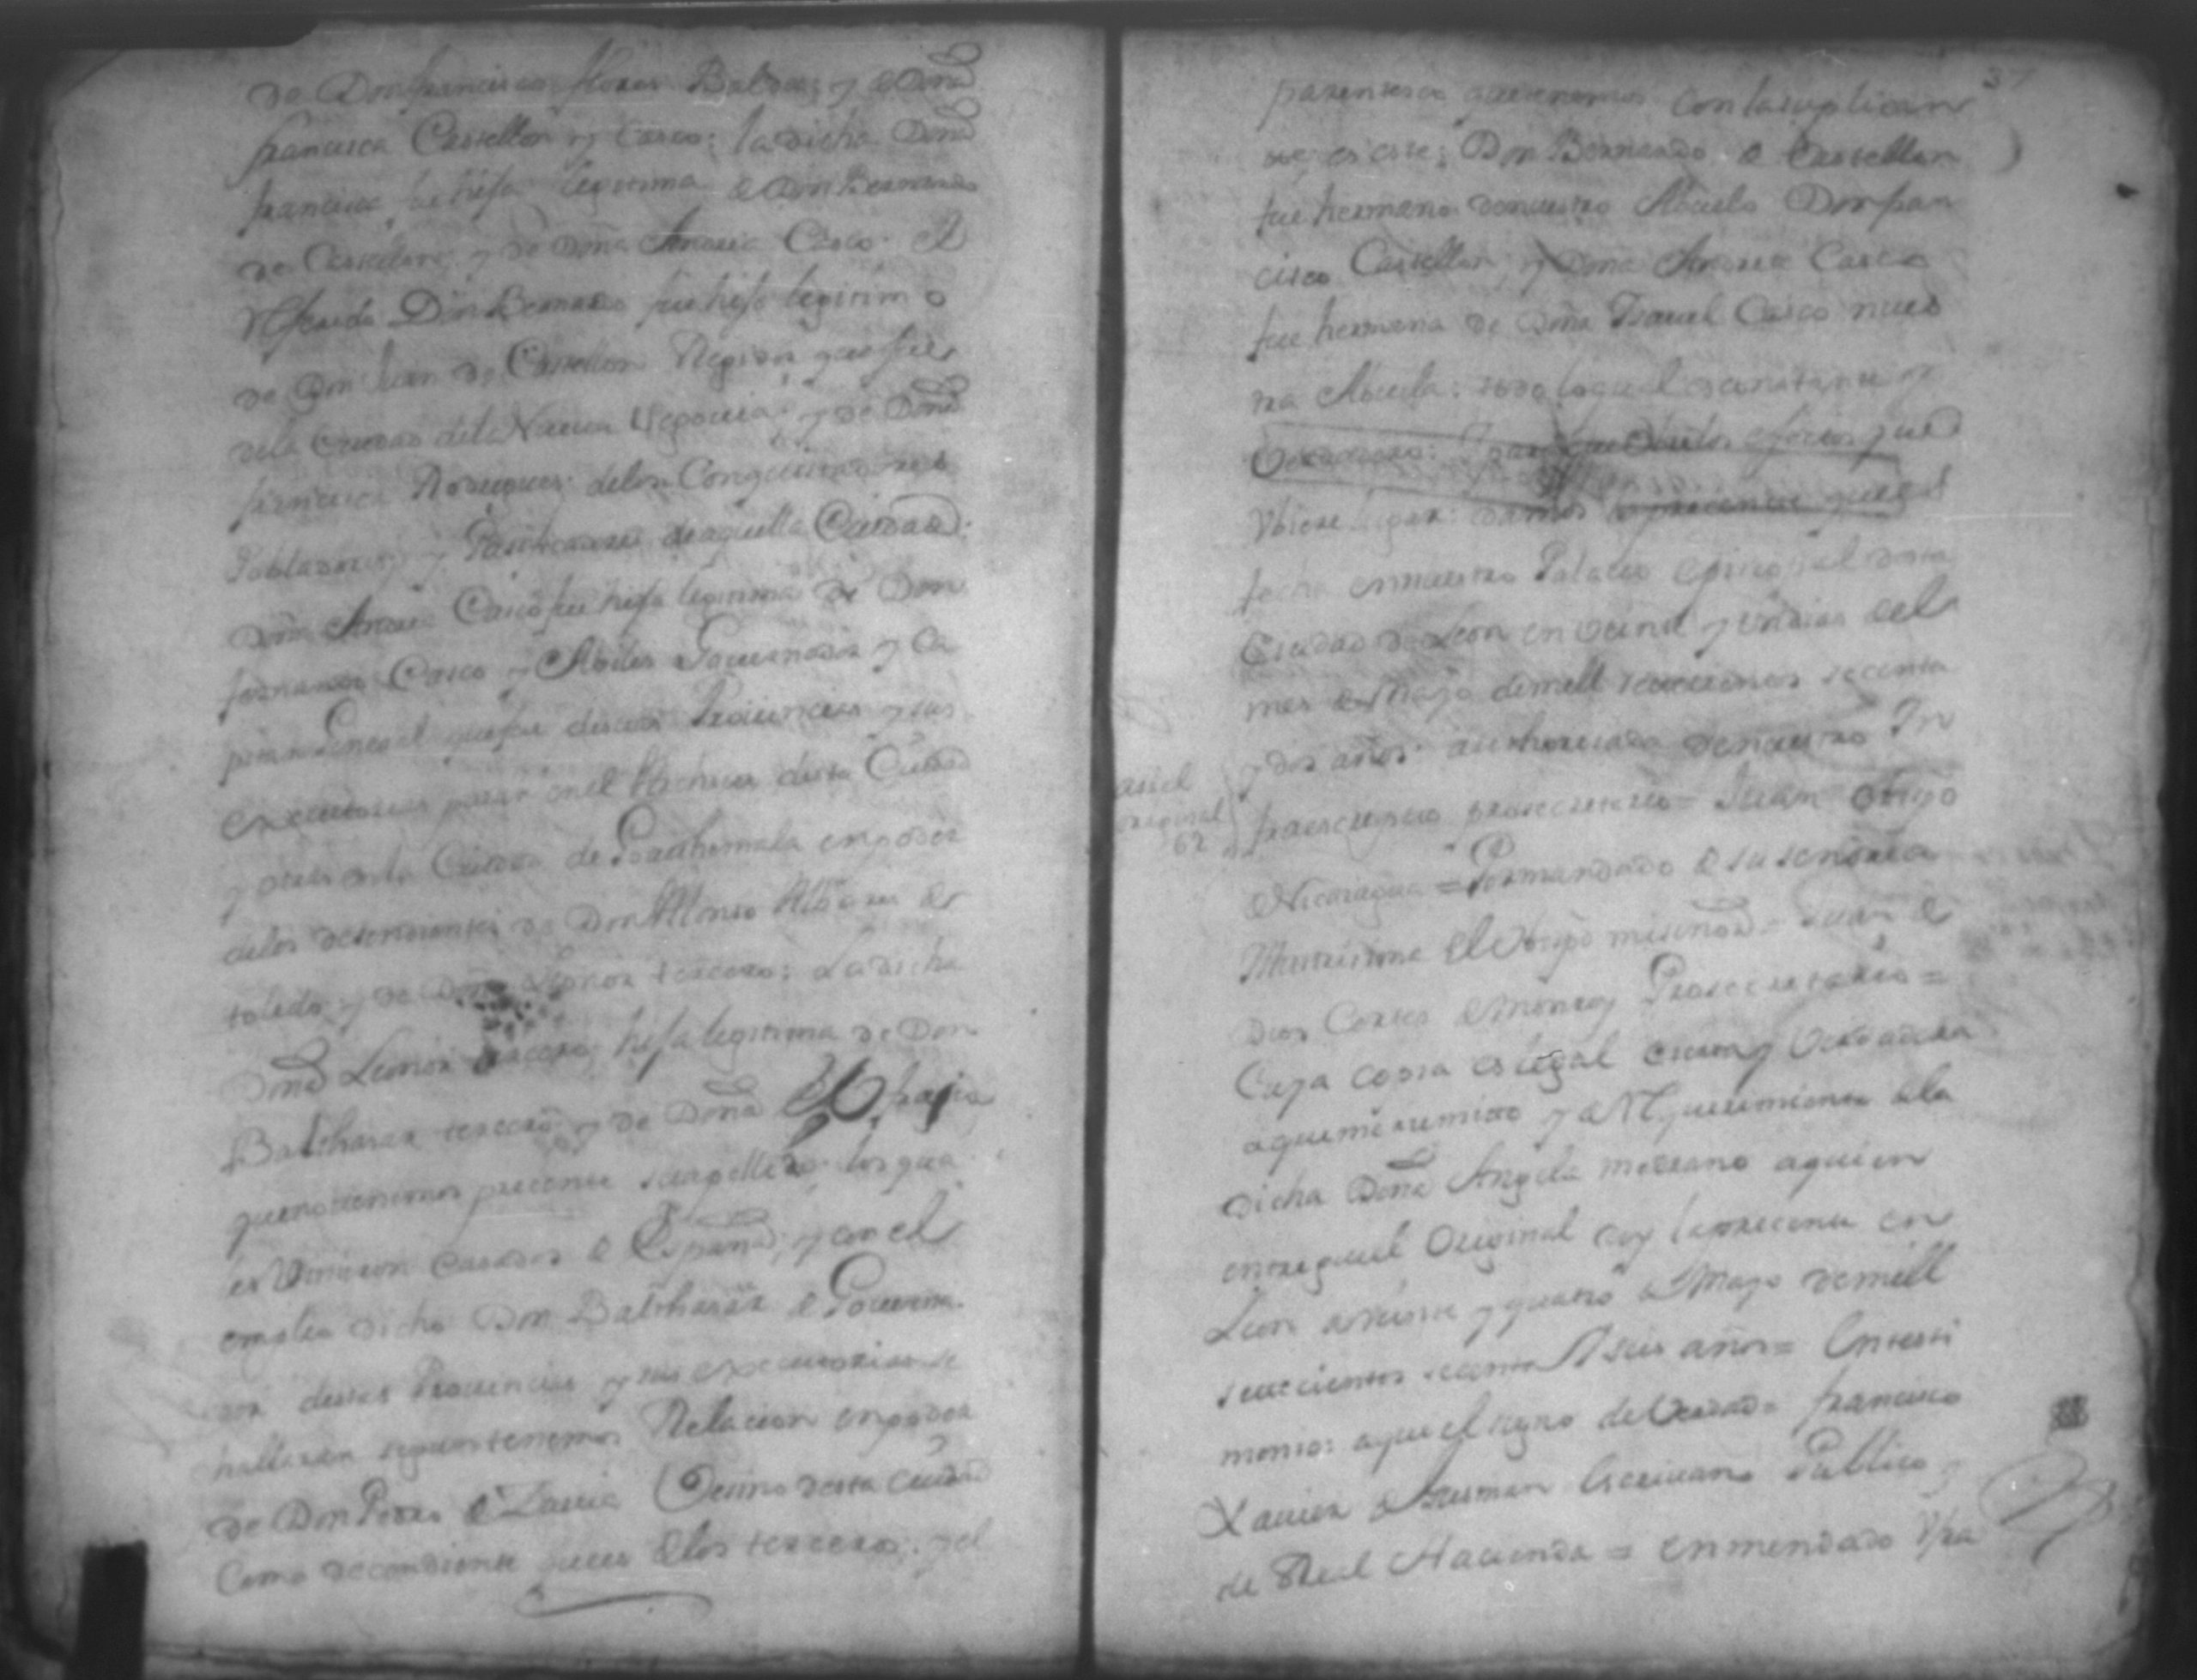 de Don francisco flores Baldes, y de Doña
francisca Castellon y Casco: la dicha Doña
francisca fue hija legitima de Don Bernardo
de Castellon y de Doña Andrea Casco: el
Referido Don Bernardo fue hijo legitimo
de Don Juan de Castellon Regidor que fue
dela Ciudad dela Nueva Segovia, y de Doña
francisca Rodrigues delos Conquistadores
Pobladores y Pacificadores de aquella Ciudad:
Doña Andrea Casco fue hija legitima de Don
fernando Casco y Abiles Gouernador y Ca
pitan General que fue destas Prouincias y sus
executorias paran en el Archivo desta Ciudad
y otras en la Ciudad de Guathemala en poder
delos desendientes de Don Alonso Albares de
toledo y de Doña Leonor tercero: La dicha
Doña Leonor tercero, hija legitima de Don
Balthasar tercero y de Doña
que no tenemos precente su apellido: los qua
les Vinieron Casados de España, y con el
empleo dicho Don Balthasar de Gouerna
dor destas Prouincias y sus executorias se
hallaran segun tenemos Relacion en poder
de Don Pedro de Vecino desta Ciudad
Como decendiente que es delos terceros: y el
37
parentesco que tenemos con la suplican
te, es este: Don Bernardo de Castellon
fue hermano de nuestro Abuelo Don fran
cisco Castellon, y Doña Andrea Casco
fue hermana de Doña Isauel Casco nues
tra Abuela: todo lo qual es constante y
Verdadero: Y para que obre los efectos que
Vbiere lugar: damos la precente que es
fecha en nuestro Palacio episcopal desta
Ciudad de Leon en veinte y un dias del
mes de Mayo de mill setecientos secenta
y dos años: authorisada de nuestro In
asi el
original
62
fraescripto prosecretario = Juan Obispo
de Nicaragua = Por mandado de su señoria
Illustrisima el Obispo mi señor = Juan de
Dios Cortes de Monroy Prosecretario =
Cuya copia es legal cierta y Verdadera
a que me remito y de Requerimiento dela
dicha Doña Angela Moreano a quien
entregue el Original doy la precente en
Leon a Veinte y quatro de Mayo de mill
setecientos secenta seis años = En testi
monio: aqui el signo de Verdad = francisco
Xauier de Gusman Escriuano Publico y
de Real Hacienda = enmendado